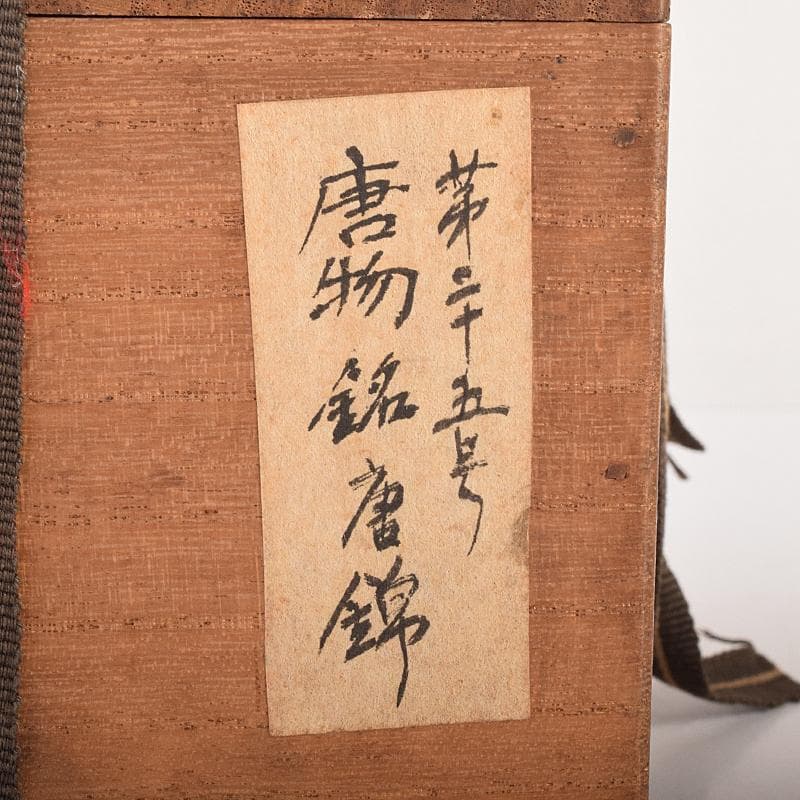 第二十五号
唐物 銘 唐錦